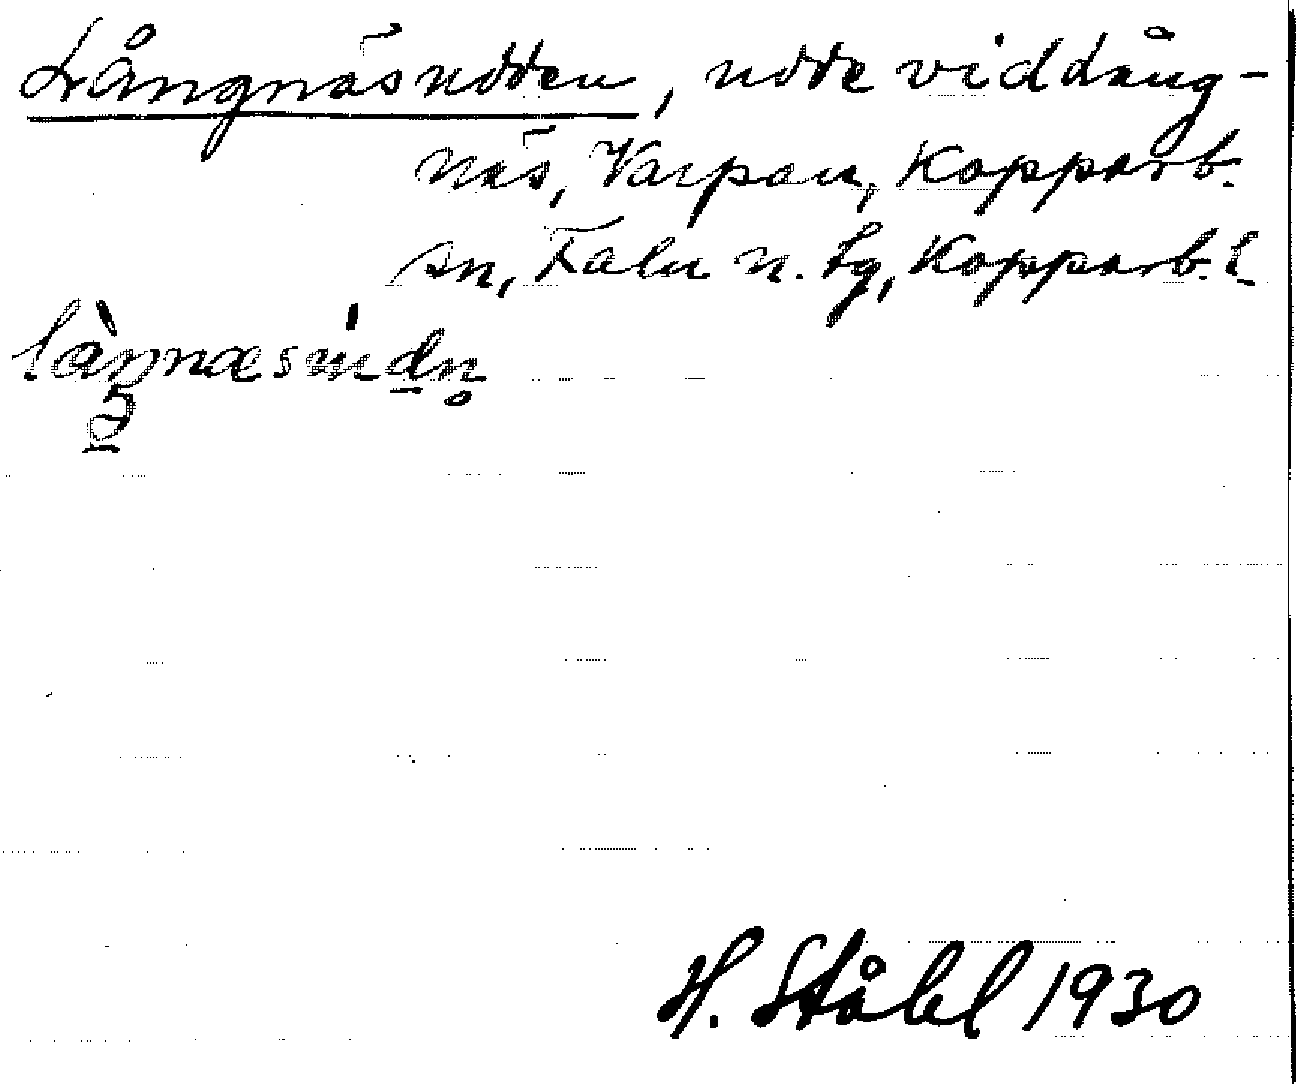 Långnäsudden, udde vid Lång-
näs, Varpan, Kopparb.
sn, Falu n. tg, Kopparb. l
H. Ståhl 1930